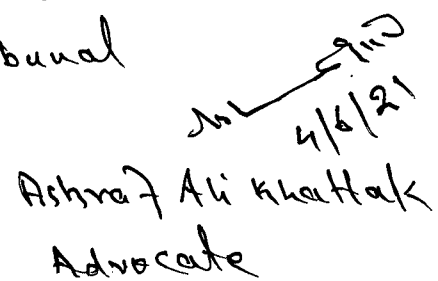 bunal
4/6/21
Ashraf Ali Khattak
Advocate